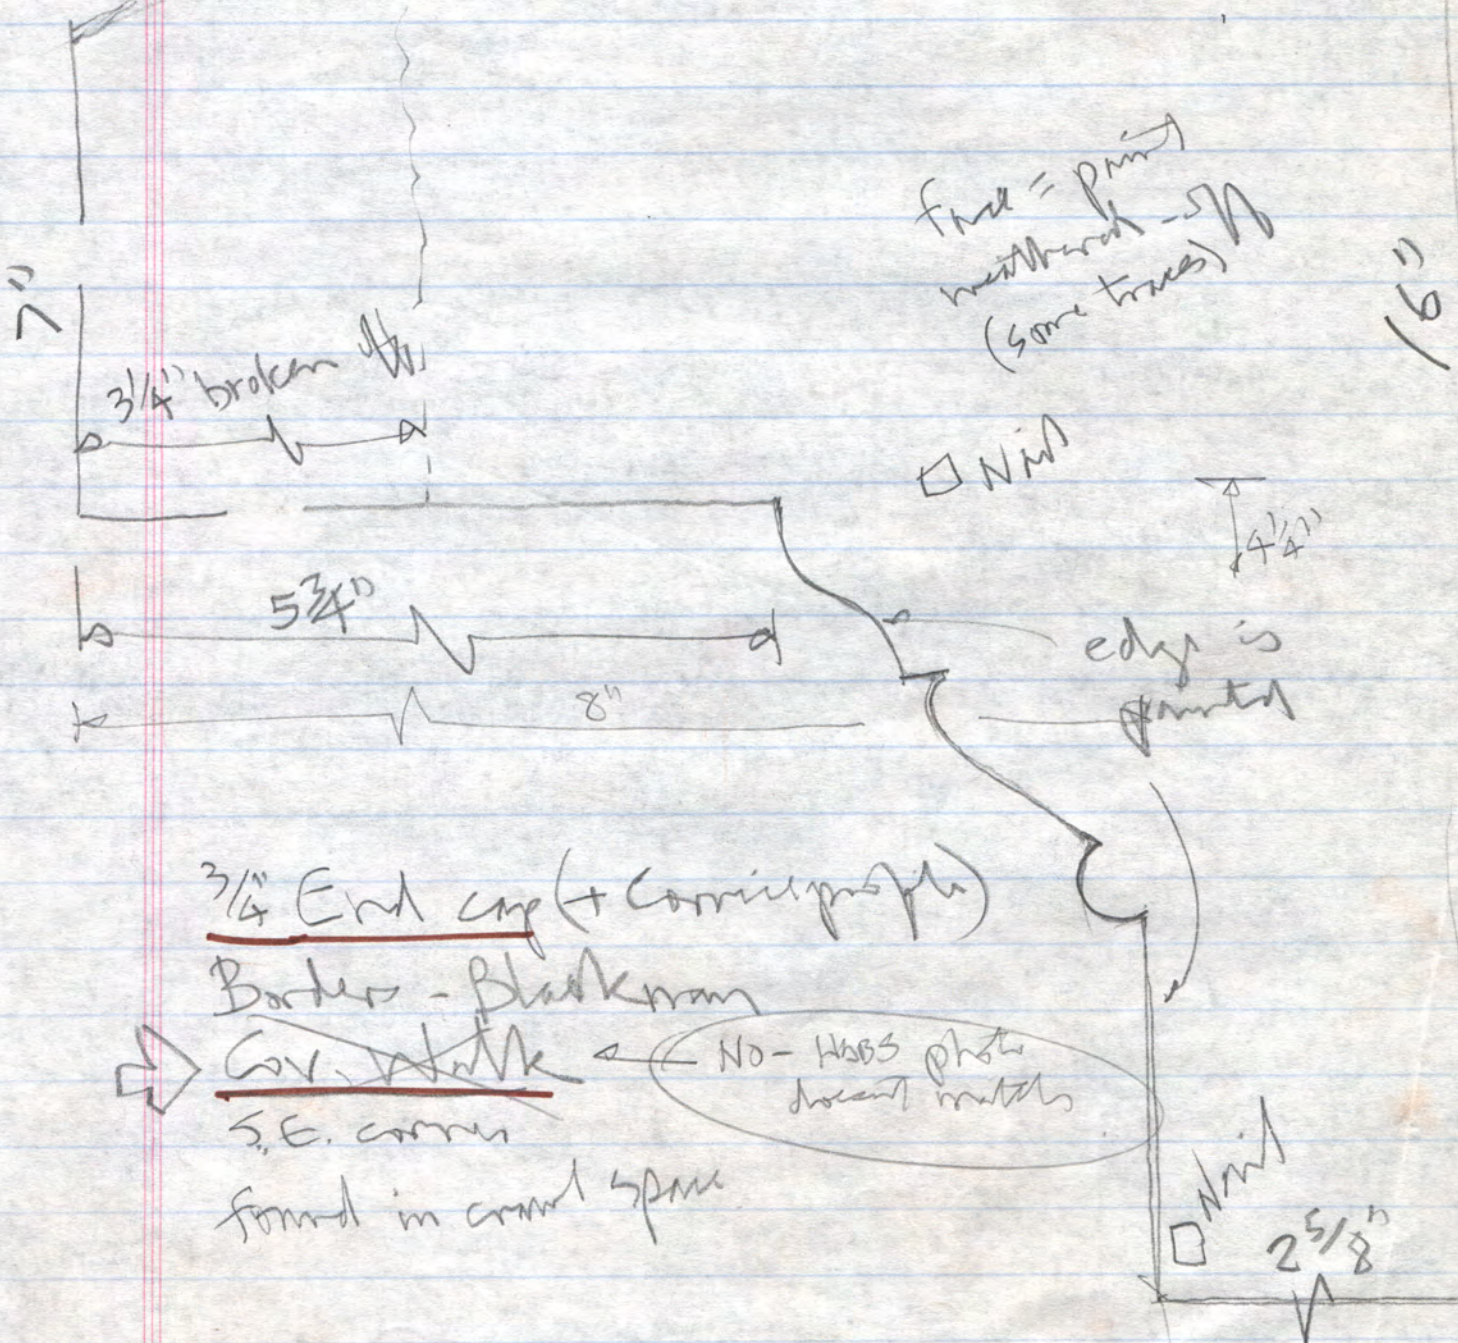 face = paint
weathered - off
(some traces)
7"
(6")
3 1/4" broken off
□ Nail
4 1/4"
5 3/4"
edge is
painted
8"
3/4" End cap (+ Cornice profile)
Borders - Blackman
Cov. Walk
No - HABS photo
doesn't match
S.E. corner
found in crawl space
□ Nail
2 5/8"